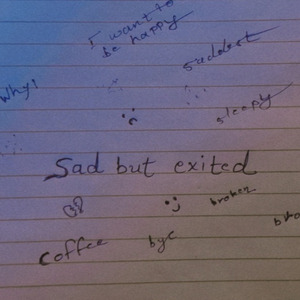 I want to
be happy
saddest
Why!
sleepy
Sad but exited
broken
coffee
bye